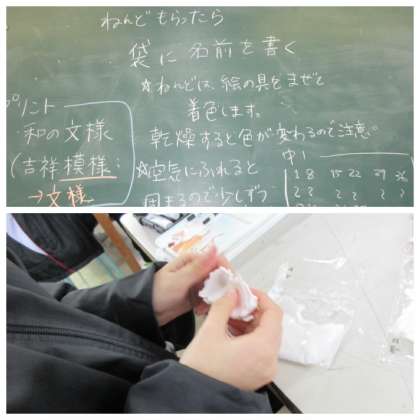 ねんどもらったら
袋に名前を書く
☆ねんどは、絵の具をまぜて
着色します。
乾燥すると色が変わるので注意。
プリント
和の文様
(吉祥模様:
→文様
☆空気にふれると
固まるので少しずつ
中1
1 8 15 22 29 36
2 2 2 2 2 2